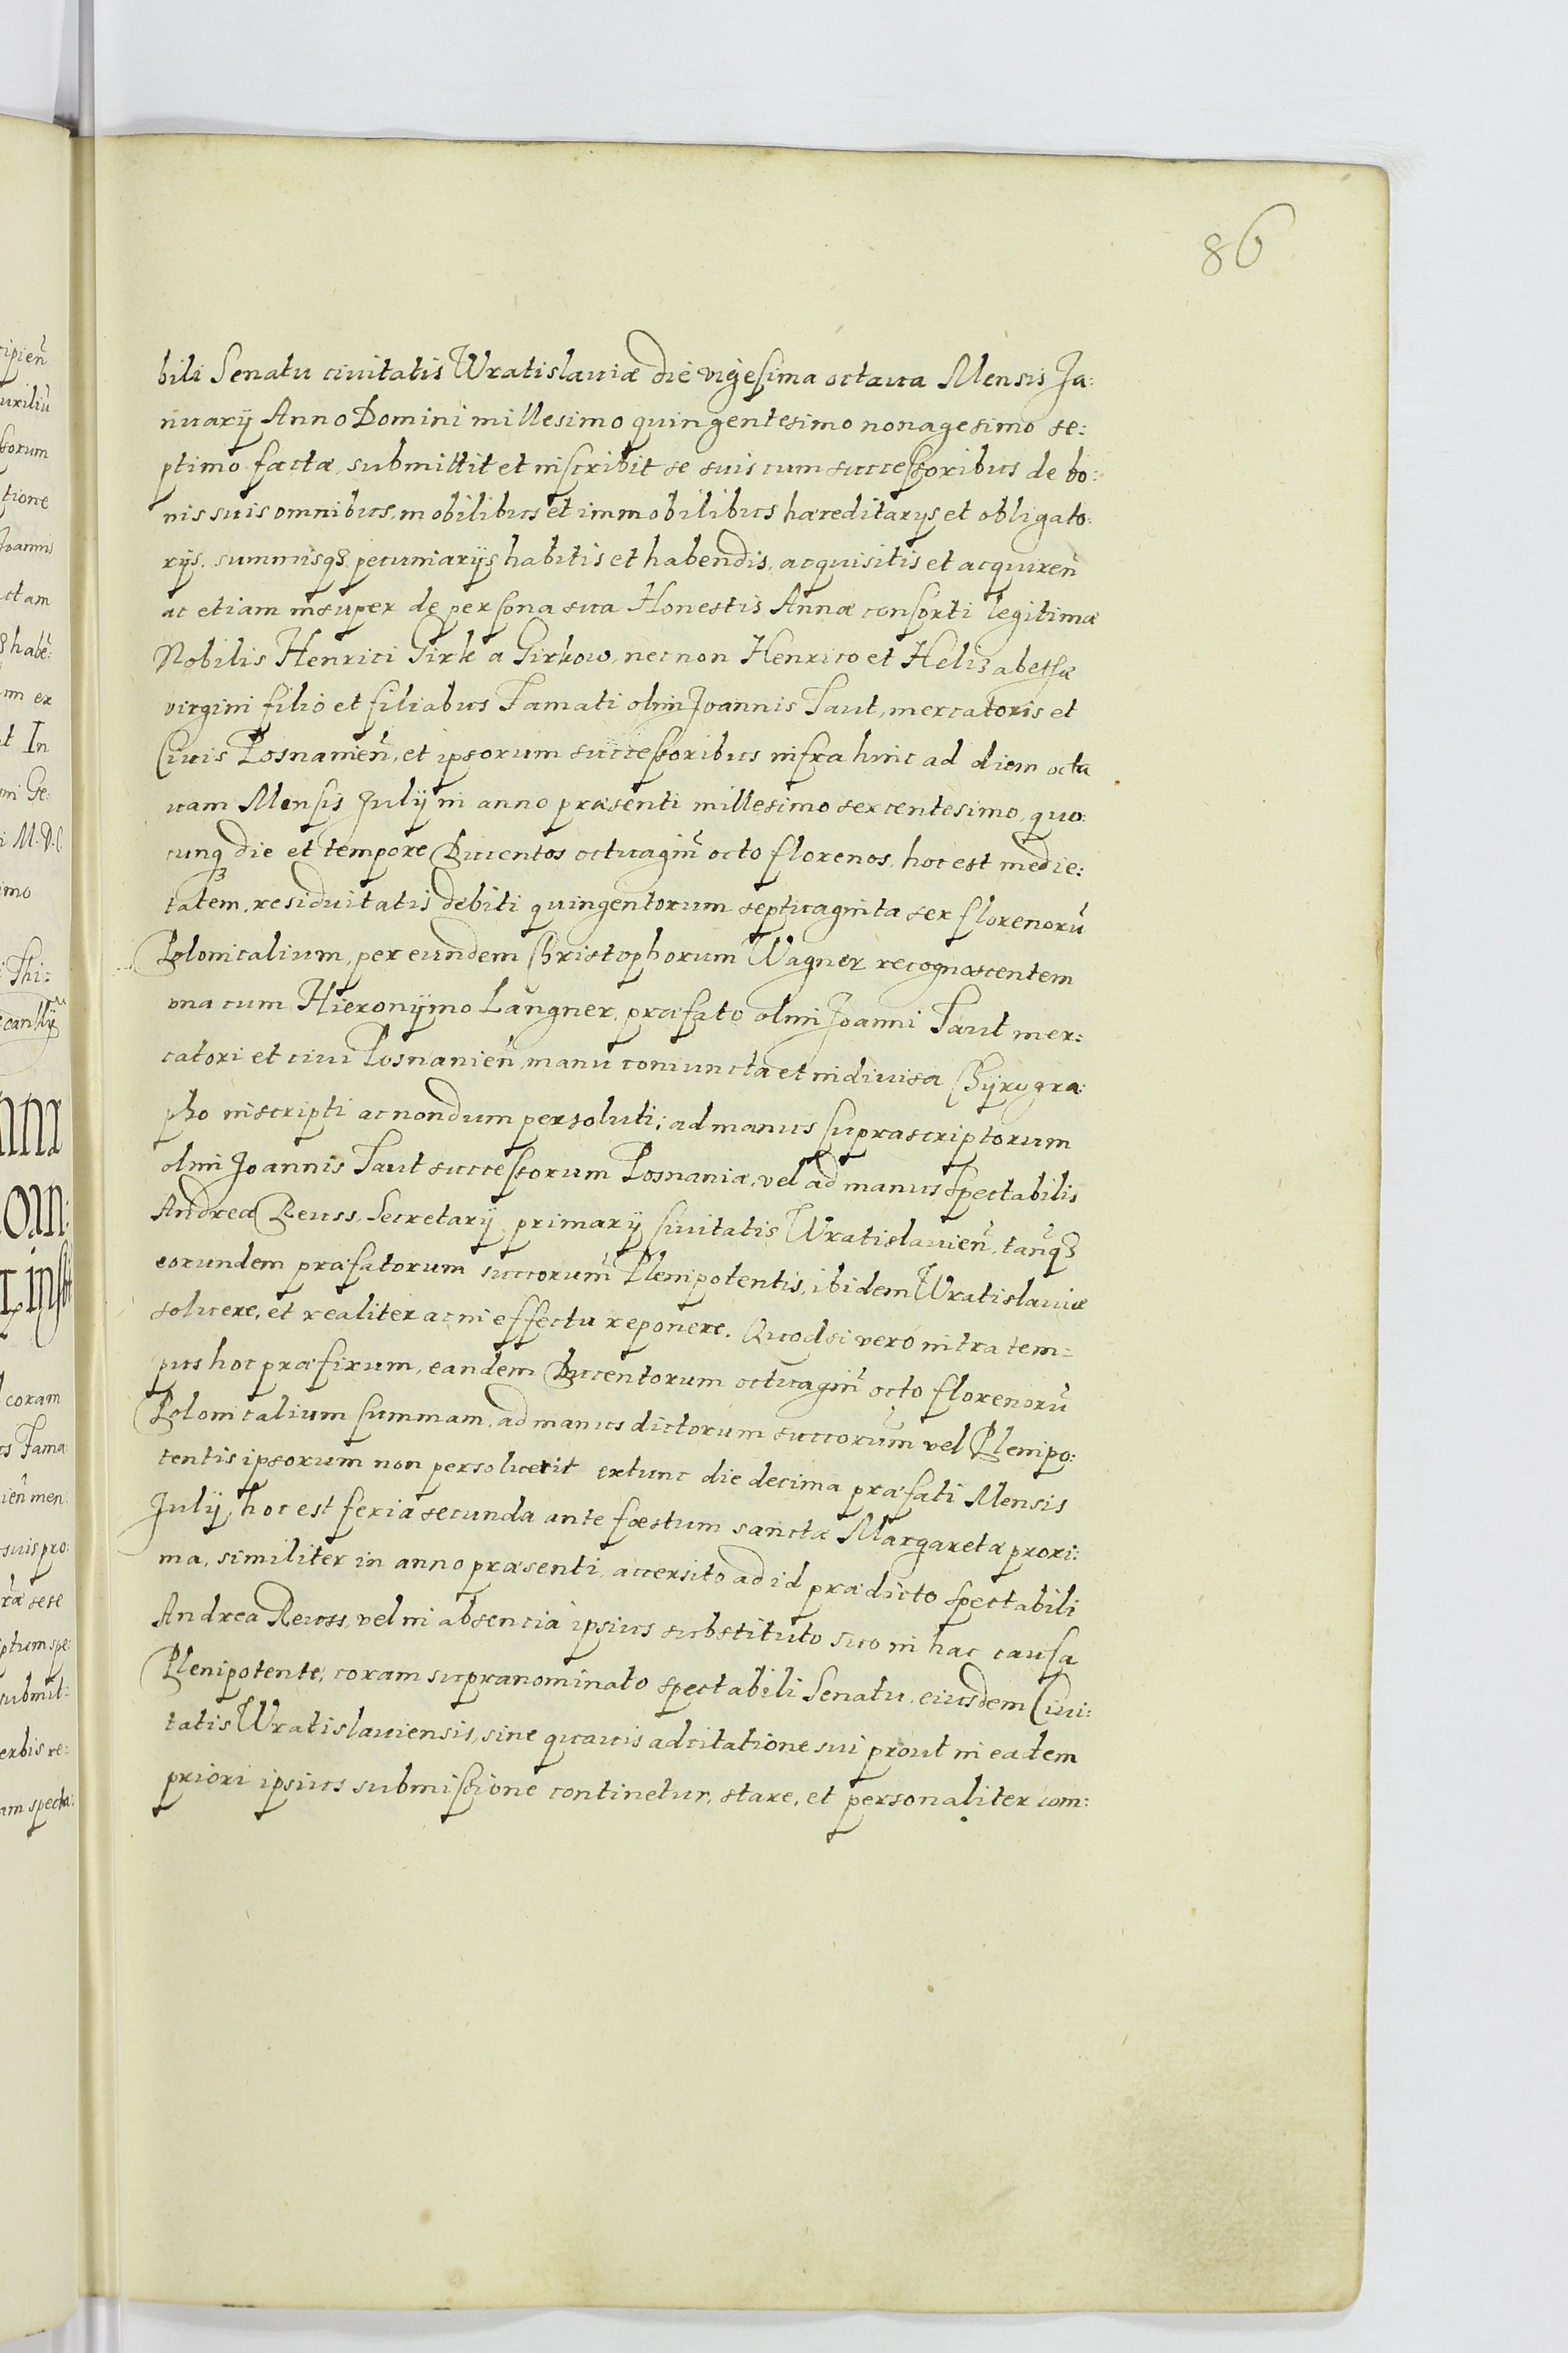 86
bili Senatu ciuitatis Wratislauiæ die vigesima octaua Mensis Ja:
nuarij Anno Domini millesimo quingentesimo nonagesimo se:
ptimo factæ, submittit et inscribit se suis cum successoribus de bo:
nis suis omnibus, mobilibus et immobilibus hæreditarijs et obligato:
rijs, summisq3 pecuniarijs habitis et habendis, acquisitis et acquiren̄
ac etiam insuper de persona sua Honestis Annæ consorti legitimæ
Nobilis Henrici Girk a Girkow, nec non Henrico et Helisabethæ
virgini filio et filiabus Famati olim Joannis Taut, mercatoris et
Ciuis Posnanien̄, et ipsorum successoribus infra hinc ad diem octa
uam Mensis Julij in anno præsenti millesimo sexcentesimo, quo:
cunq3 die et tempore Ducentos octuagin̄ octo florenos, hoc est medie:
tatem, residuitatis debiti quingentorum septuaginta sex florenorū
Polonicalium, per eundem Christophorum Wagner recognoscentem
vna cum Hieronijmo Langner, præfato olim Joanni Taut mer:
catori et ciui Posnanien̄, manu coniuncta et indiuisa Chijrogra:
pho inscripti ac nondum persoluti; ad manus suprascriptorum
olim Joannis Taut successorum Posnaniæ, vel ad manus Spectabilis
Andreæ Reuss, Secretarij primarij Ciuitatis Wratislauien̄, tanq̄3
eorundem præfatorum succorum̄ Plenipotentis, ibidem Wratislauiæ
soluere, et realiter ac in effectu reponere. Quodsi verò intra tem=
pus hoc præfixum, eandem Ducentorum octuagin̄ octo florenorū
Polonicalium summam, ad manus dictorum succorum̄ vel Plenipo:
tentis ipsorum non persoluerit extunc die decima præfati Mensis
Julij, hoc est feria secunda ante fæstum sanctæ Margaretæ proxi:
ma, similiter in anno præsenti, accersito ad id prædicto spectabili
Andrea Reuss, vel in absencia ipsius substituto suo in hac causa
Plenipotente, coram supranominato spectabili Senatu, eiusdem Ciui:
tatis Wratislauiensis, sine quauis adcitatione sui prout in eadem
priori ipsius submissione continetur, stare, et personaliter com: